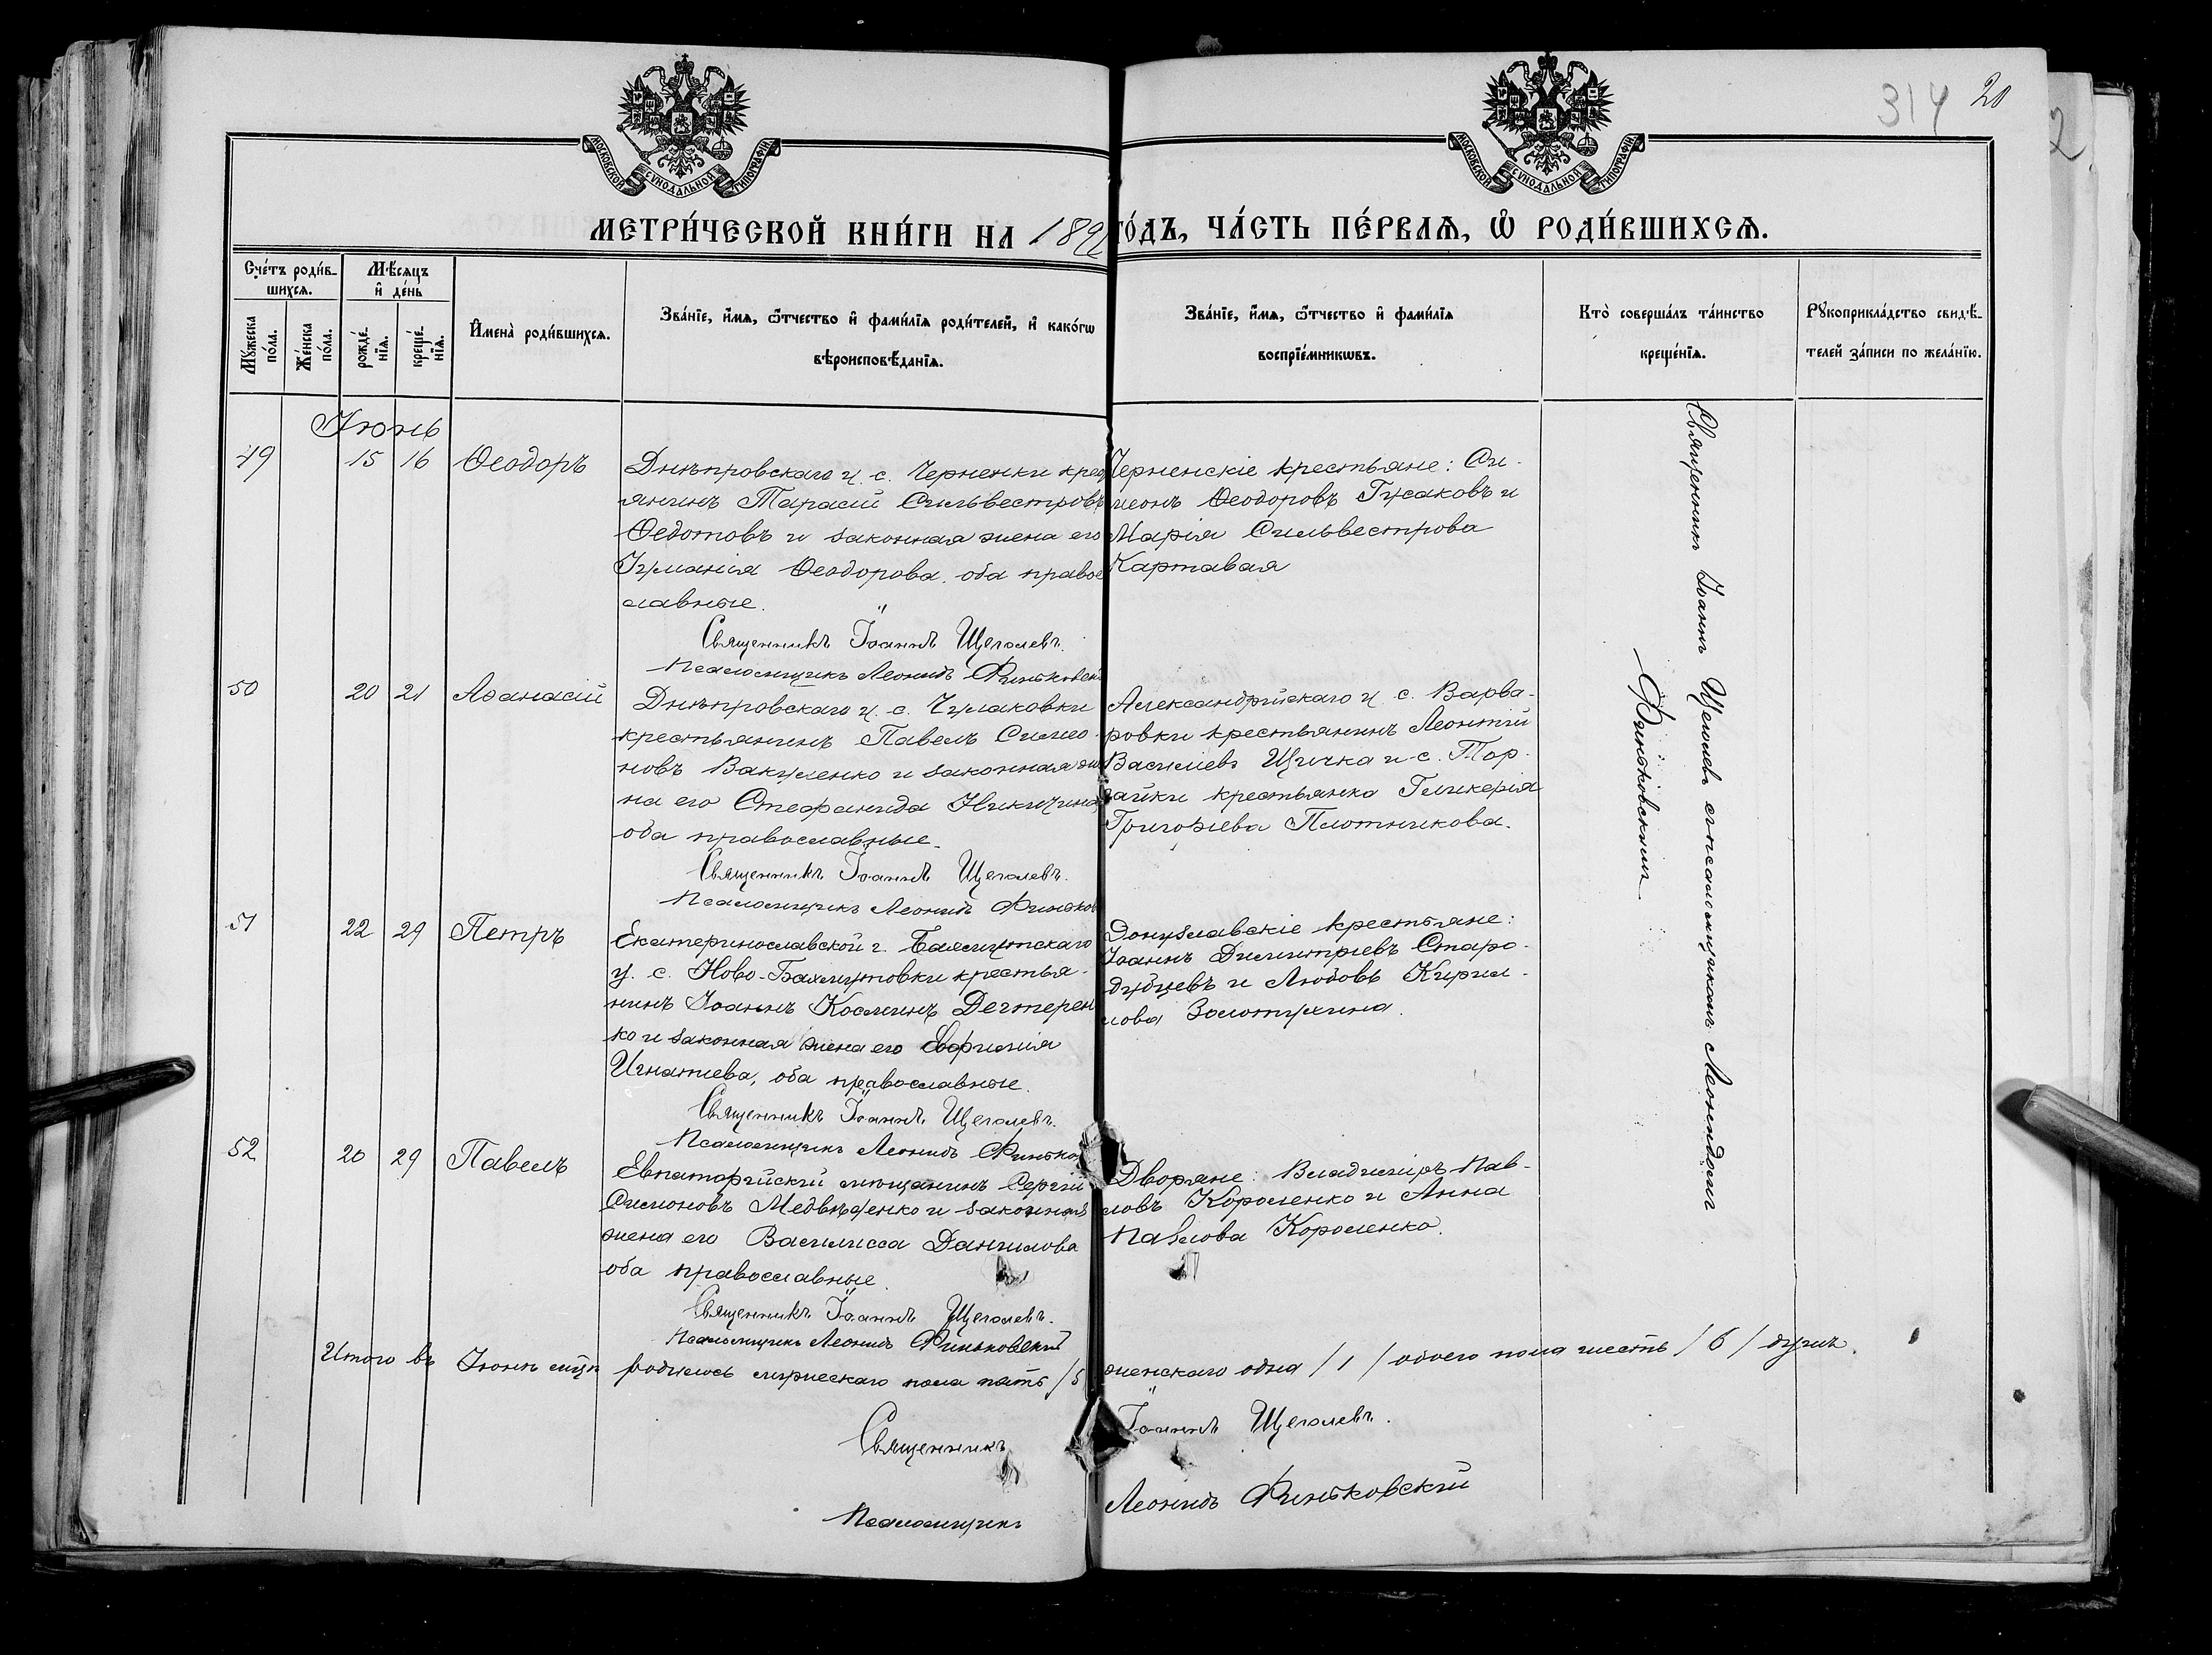 314 20
2
МОСКОВСКОЙ СУНОДАЛЬНОЙ ТИПОГРАФІИ
МОСКОВСКОЙ СУНОДАЛЬНОЙ ТИПОГРАФІИ
МЕТРИ́ЧЕСКОЙ КНИ́ГИ НА 189
ГО́ДЪ, ЧА́СТЬ ПЕ́РВАѦ, Ѡ҆ РОДИ́ВШИХСѦ.
Сче́тъ роди́вшихсѧ.
Мꙋ́жеска по́ла.
Же́нска по́ла.
Мѣ́сѧцъ и҆ де́нь
рожде́нїѧ.
креще́нїѧ.
И҆мена̀ роди́вшихсѧ.
Зва́нїе, и҆́мѧ, ѻ҆́тчество и҆ фами́лїѧ роди́телей, и҆ како́гѡ
вѣроисповѣ́данїѧ.
Зва́нїе, и҆́мѧ, ѻ҆́тчество и҆ фами́лїѧ
воспрїе́мникѡвъ.
Кто̀ соверша́лъ та́инство
креще́нїѧ.
Рꙋкоприкла́дство свидѣ́-
телей за́писи по жела́нїю.
Іюнь
49 15 16 Ѳеодоръ
Днѣпровскаго у. с. Черненки крес
янинъ Тарасій Сильвестровъ
Ѳедотовъ и законная жена его
Іуліанія Ѳеодорова, оба право
славные.
Священникъ Іоаннъ Щеголевъ.
Псаломщикъ Леонидъ Финьковск
Черненскіе крестьяне: Си-
меонъ Ѳеодоровъ Гусаковъ и
Марія Сильвестрова
Картавая
50 20 21 Аѳанасій
Днѣпровскаго у. с. Чулаковки
крестьянинъ Павелъ Симео-
новъ Вакуленко и законная же
на его Стефанида Никитина
оба православные.
Священникъ Іоаннъ Щеголевъ.
Псаломщикъ Леонидъ Финьков
Александрійскаго у. с. Варва-
ровки крестьянинъ Леонтій
Василіевъ Щучка и с. Тор-
гайки крестьянка Гликерія
Григоріева Плотникова.
51 22 29 Петръ
Екатеринославской г. Бахмутскаго
у. с. Ново-Бахмутовки крестья-
нинъ Іоаннъ Косминъ Дегтерен
ко и законная жена его Евфимія
Игнатіева, оба православные.
Священникъ Іоаннъ Щеголевъ.
Псаломщикъ Леонидъ Финько
Донузлавскіе крестьяне:
Іоаннъ Димитріевъ Старо-
дубцевъ и Любовь Кирил-
лова Золотухина.
52 20 29 Павелъ
Евпаторійскій мѣщанинъ Сергій
Симоновъ Медвѣденко и законная
жена его Василисса Даниилова
оба православные.
Священникъ Іоаннъ Щеголевъ.
Псаломщикъ Леонидъ Финьковскій
Дворяне: Владиміръ Пав-
ловъ Короленко и Анна
Павлова Короленко.
Священникъ Іоаннъ Щеголевъ съ псаломщикомъ Леонидомъ
Финьковскимъ
Итого въ Іюнѣ мѣцѣ родилось мужескаго пола пять /5 женскаго одна /1/ обоего пола шесть /6/ душъ.
Священникъ Іоаннъ Щеголевъ.
Псаломщикъ Леонидъ Финьковскій